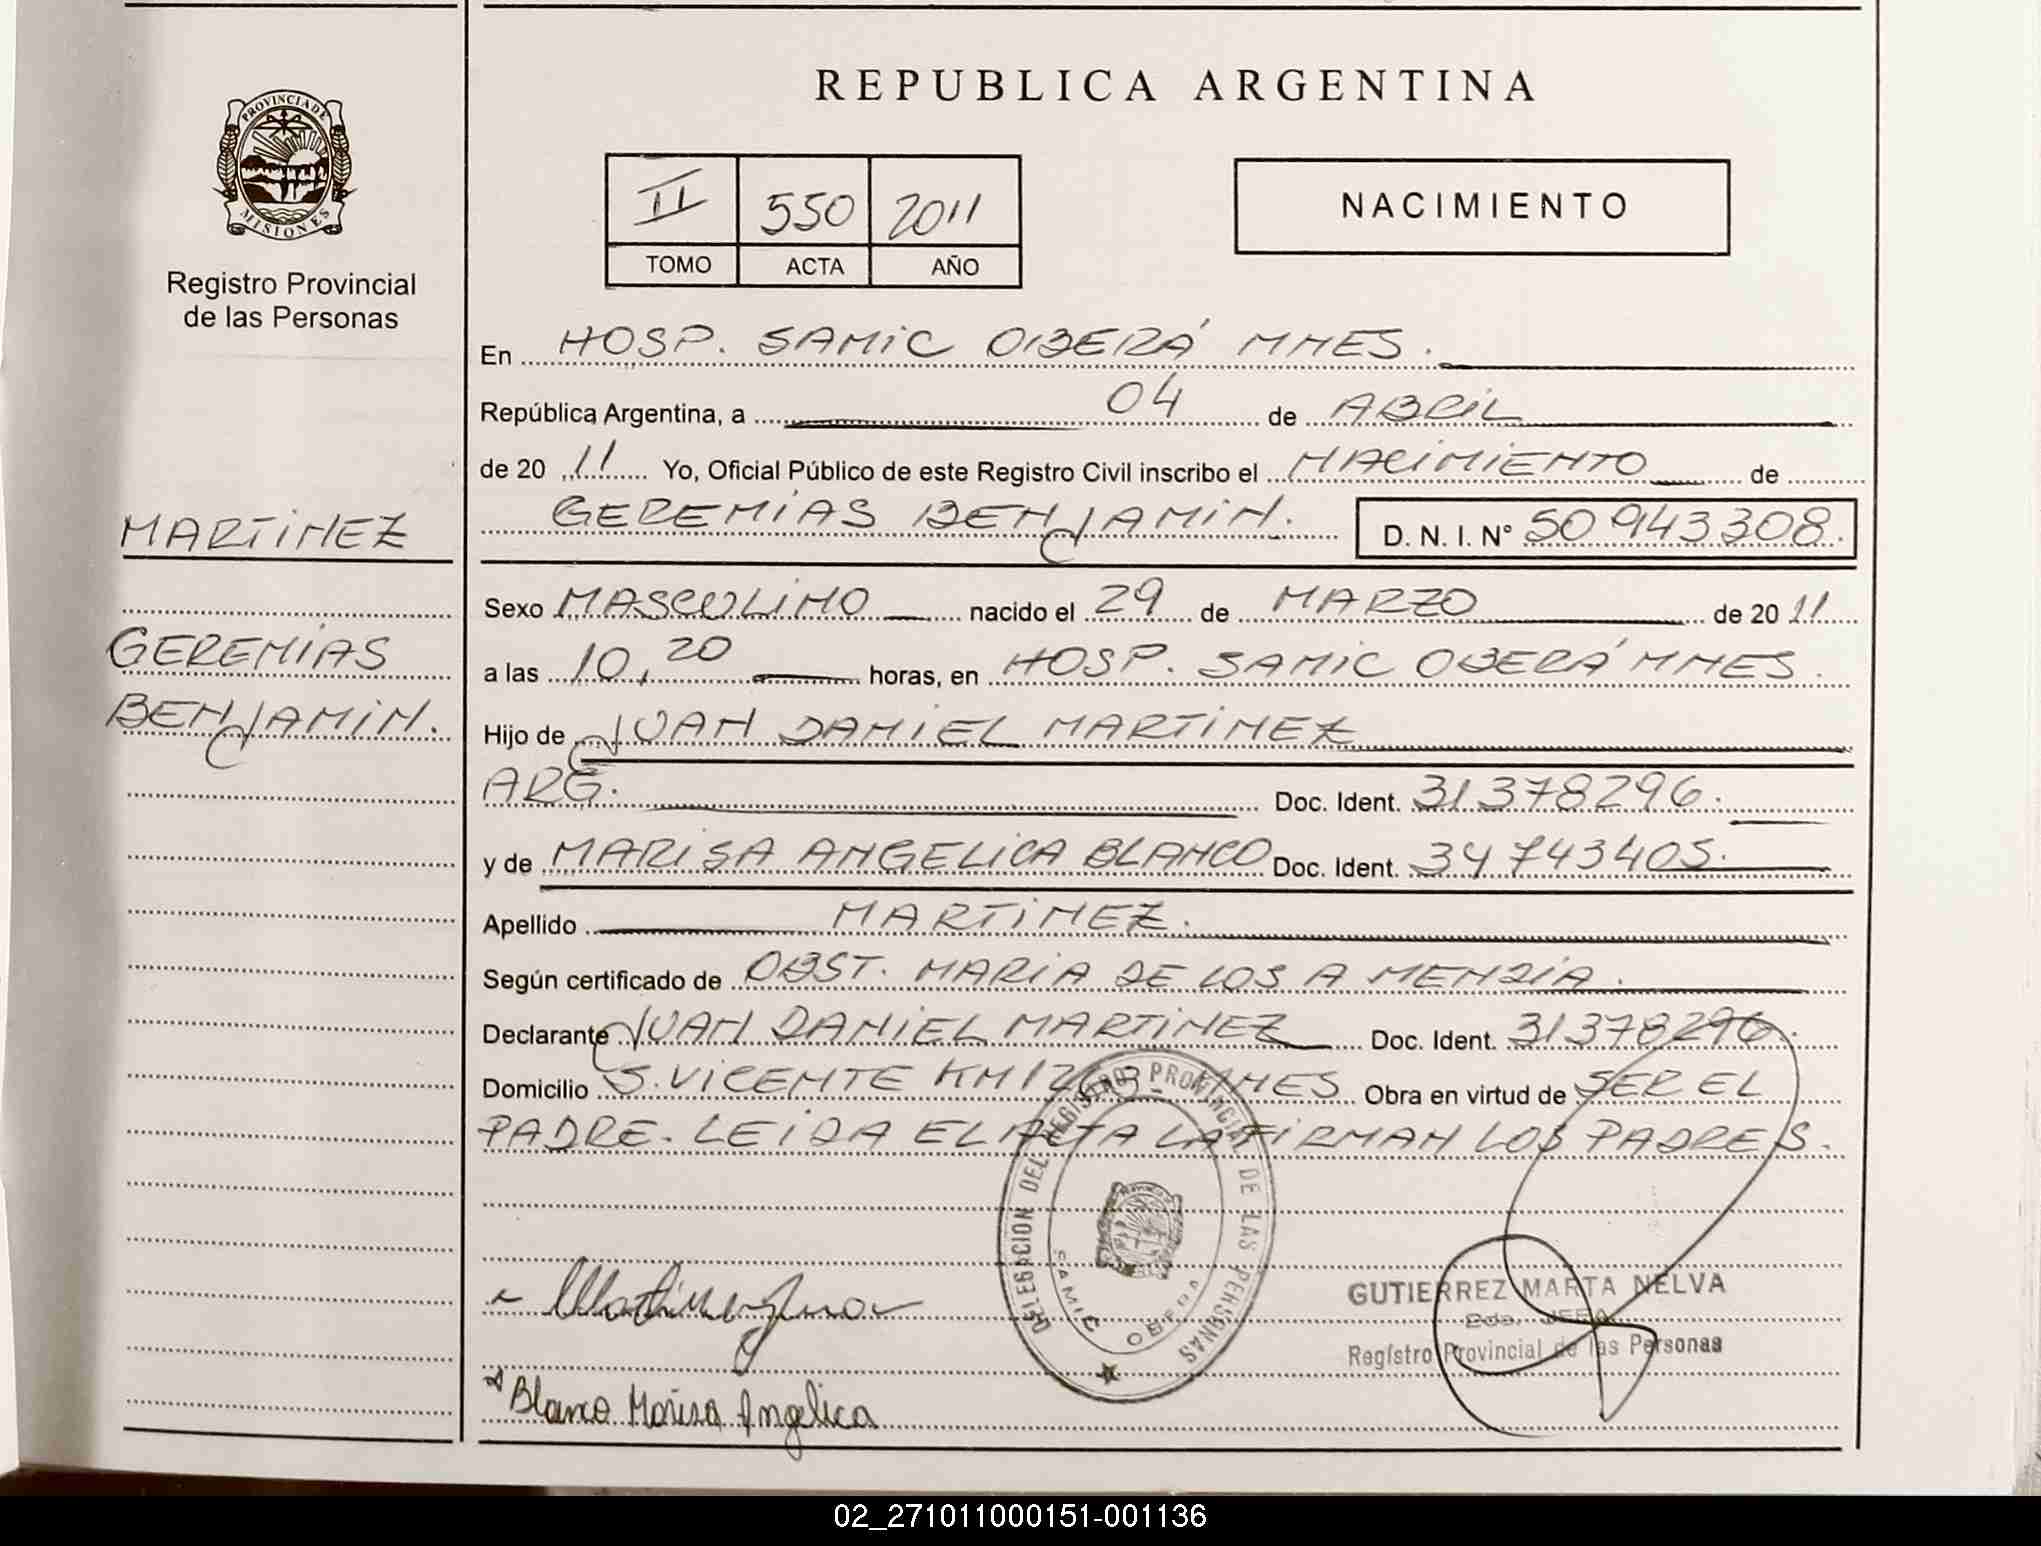 REPUBLICA ARGENTINA
PROVINCIA DE MISIONES
Registro Provincial
de las Personas
II 550 2011
TOMO ACTA AÑO
NACIMIENTO
En HOSP. SAMIC OBERÁ MNES.
República Argentina, a 04 de ABRIL
de 20 11 Yo, Oficial Público de este Registro Civil inscribo el NACIMIENTO de
GEREMIAS BENJAMIN. D. N. I. N° 50943308.
MARTINEZ
GEREMIAS
BENJAMIN.
Sexo MASCULINO nacido el 29 de MARZO de 20 11
a las 10,20 horas, en HOSP. SAMIC OBERÁ MNES.
Hijo de JUAN DANIEL MARTINEZ
ARG. Doc. Ident. 31378296.
y de MARISA ANGELICA BLANCO Doc. Ident. 34743405.
Apellido MARTINEZ.
Según certificado de OBST. MARIA DE LOS A MENDIA.
Declarante JUAN DANIEL MARTINEZ Doc. Ident. 31378296.
Domicilio S. VICENTE KM MNES Obra en virtud de SER EL
PADRE. LEIDA EL ACTA LA FIRMAN LOS PADRES.
DELEGACION DEL REGISTRO PROVINCIAL DE LAS PERSONAS
SAMIC OBERA
Martinez Juan
Blanco Marisa Angelica
GUTIERREZ MARTA NELVA
2da. JEFA
Registro Provincial de las Personas
02_271011000151-001136